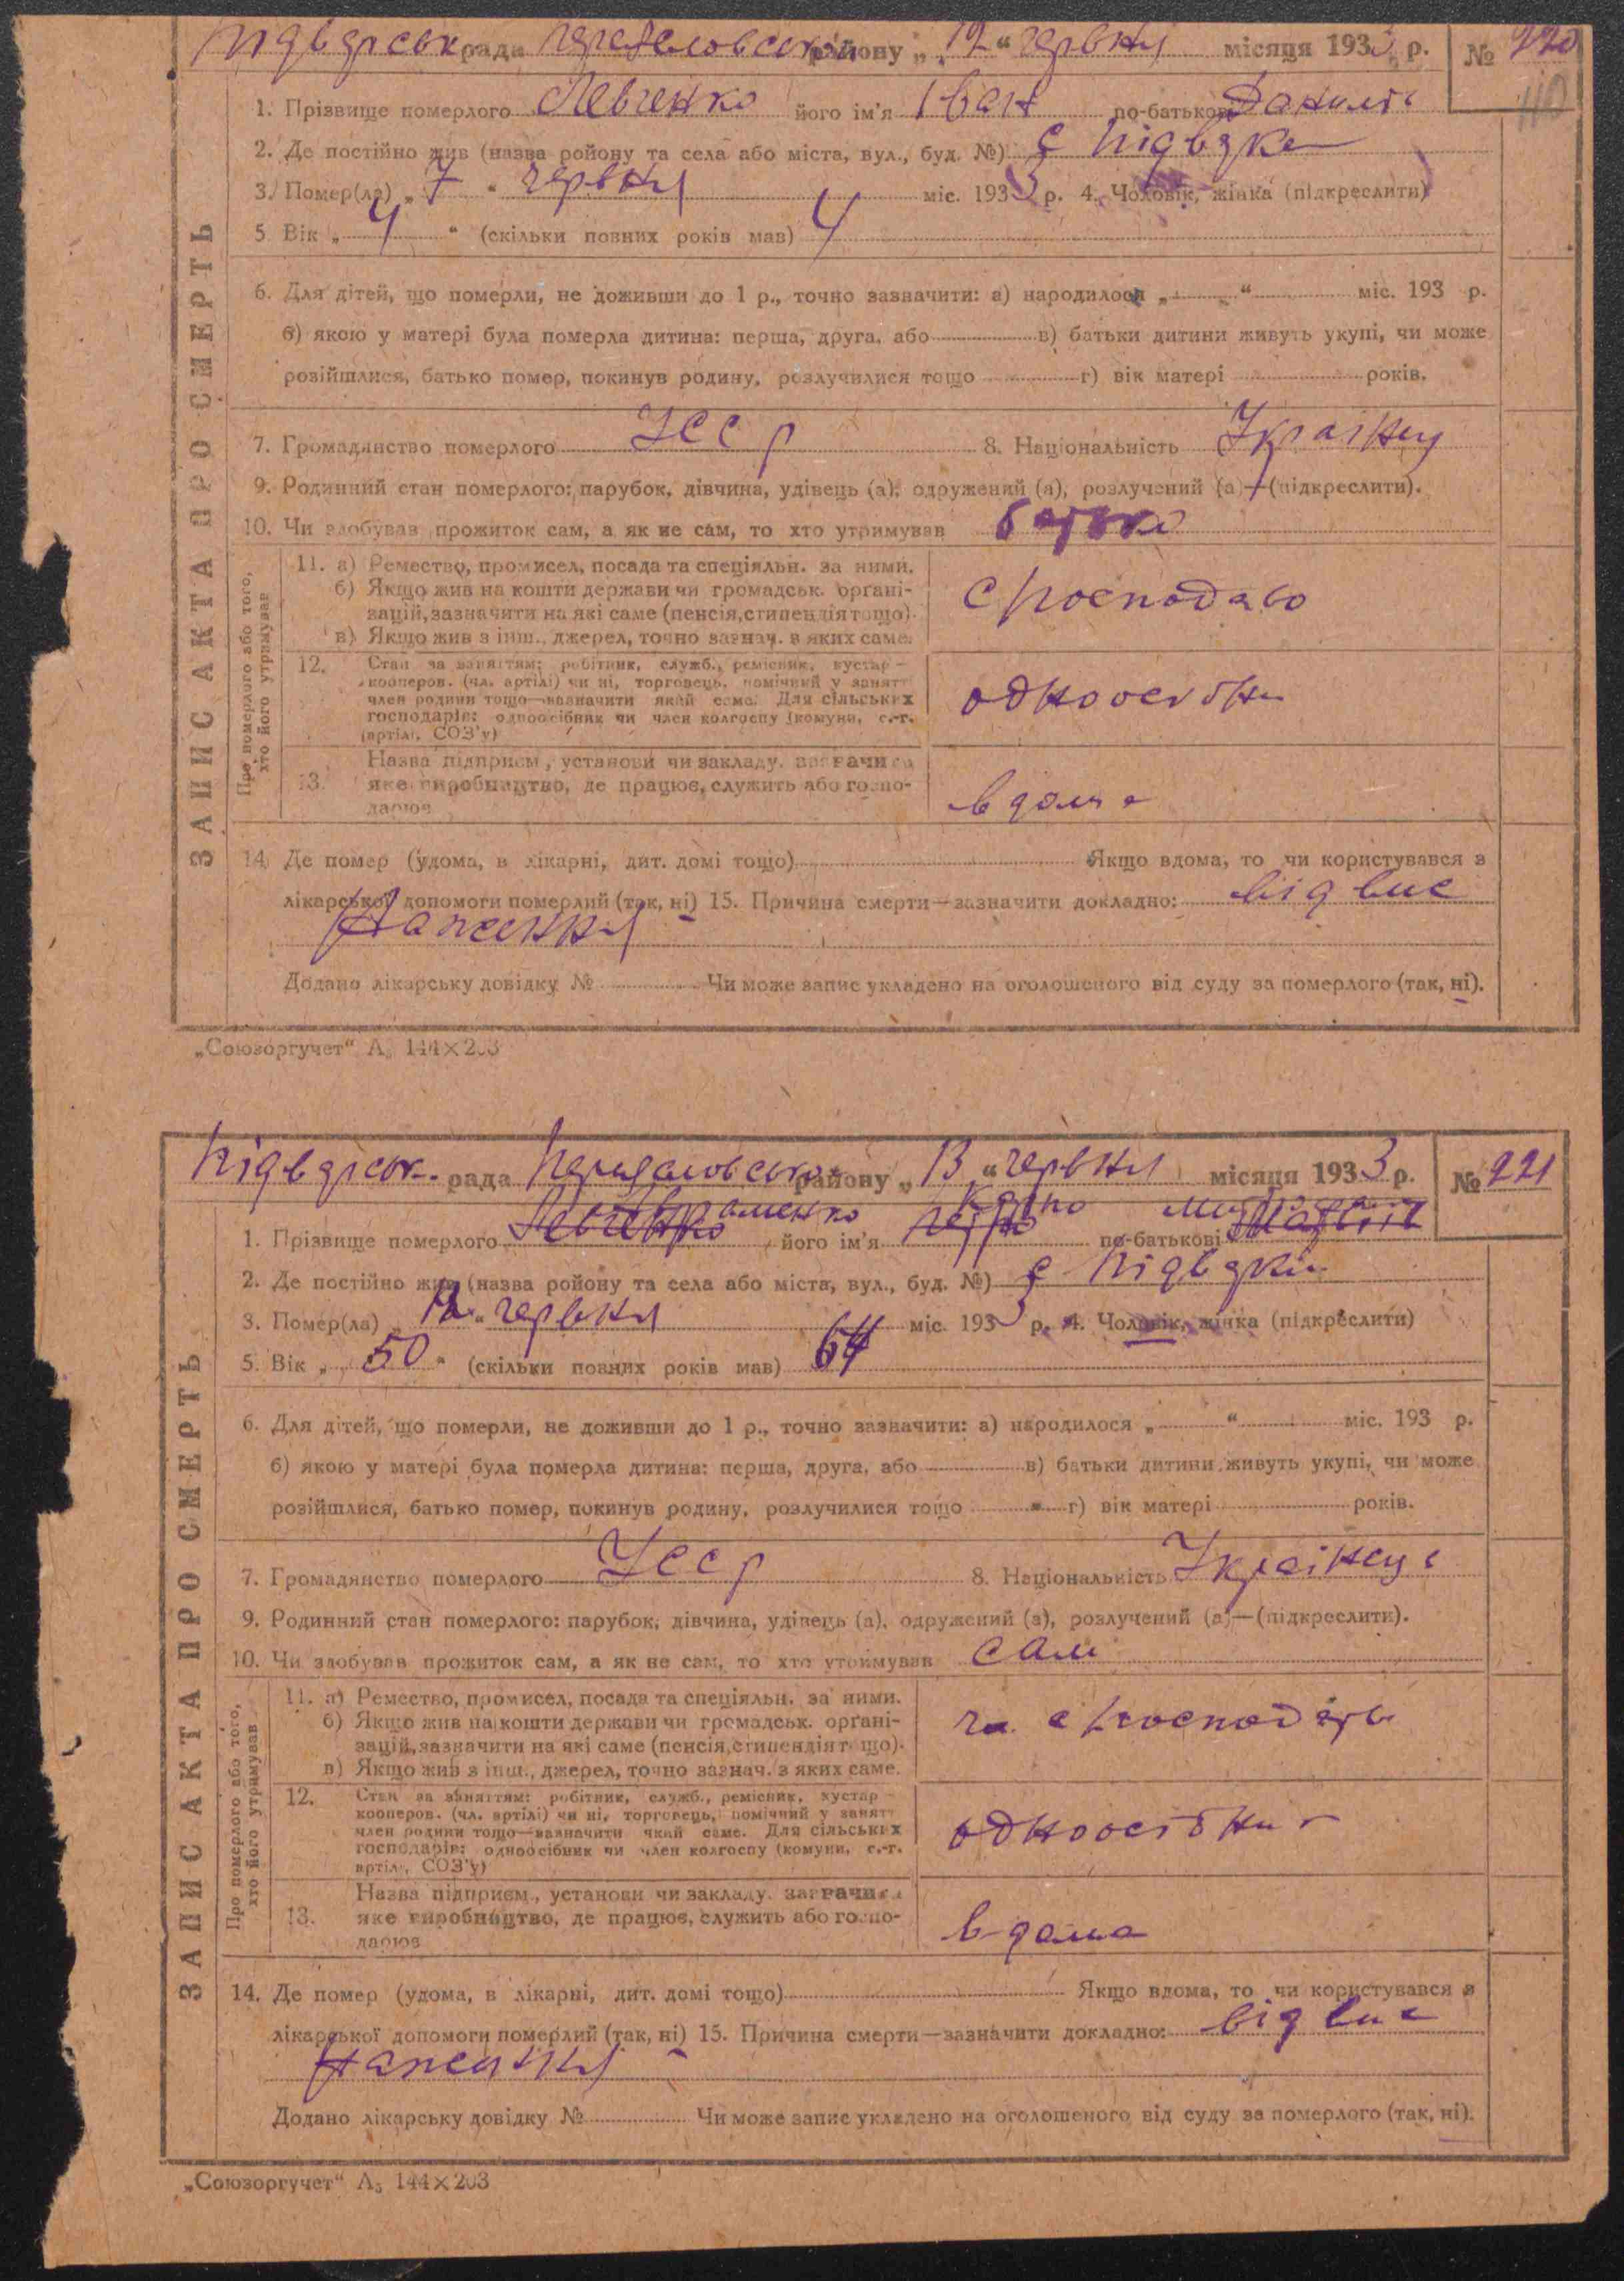 рада району „ 12 “ червня місяця 1933 р. № 220
110
ЗАПИС АКТА ПРО СМЕРТЬ
1. Прізвище померлого Левченко його ім'я Іван по-батькові
2. Де постійно жив (назва ройону та села або міста, вул., буд. №) с Підварки
3. Помер(ла) „ 7 “ червня міс. 1933 р. 4. Чоловік, жінка (підкреслити)
5. Вік „ 4 “ (скільки повних років мав) 4
6. Для дітей, що померли, не доживши до 1 р., точно зазначити: а) народилося „ “ міс. 193 р.
б) якою у матері була померла дитина: перша, друга, або в) батьки дитини живуть укупі, чи може
розійшлися, батько помер, покинув родину, розлучилися тощо г) вік матері років.
7. Громадянство померлого УССР 8. Національність Українец
9. Родинний стан померлого: парубок, дівчина, удівець (а), одружений (а), розлучений (а)—(підкреслити).
10. Чи здобував прожиток сам, а як не сам, то хто утримував батько
Про померлого або того, хто його утримував
11. а) Ремество, промисел, посада та спеціяльн. за ними.
б) Якщо жив на кошти держави чи громадськ. органі-
зацій, зазначити на які саме (пенсія, стипендія тощо).
в) Якщо жив з інш., джерел, точно зазнач. з яких саме.
12. Стан за заняттям: робітник, служб., ремісник, кустар –
кооперов. (чл. артілі) чи ні, торговець, помічний у занятт
член родини тощо—зазначити який саме. Для сільських
господарів: одноосібник чи член колгоспу (комуни, с.-г.
артілі, СОЗ'у)
13. Назва підприєм., установи чи закладу. зазначити
яке виробництво, де працює, служить або госпо-
дарює
вдома
14. Де помер (удома, в лікарні, дит. домі тощо) Якщо вдома, то чи користувався з
лікарської допомоги померлий (так, ні) 15. Причина смерти—зазначити докладно: від вис
наження
Додано лікарську довідку № Чи може запис укладено на оголошеного від суду за померлого (так, ні).
„Союзоргучет“ А5 144×203
рада району „ 13 “ червня місяця 1933 р. № 221
ЗАПИС АКТА ПРО СМЕРТЬ
1. Прізвище померлого його ім'я по-батькові
2. Де постійно жив (назва ройону та села або міста, вул., буд. №) с Підварки
3. Помер(ла) „ “ червня міс. 1933 р. 4. Чоловік, жінка (підкреслити)
5. Вік „ 50 “ (скільки повних років мав)
6. Для дітей, що померли, не доживши до 1 р., точно зазначити: а) народилося „ “ міс. 193 р.
б) якою у матері була померла дитина: перша, друга, або в) батьки дитини живуть укупі, чи може
розійшлися, батько помер, покинув родину, розлучилися тощо г) вік матері років.
7. Громадянство померлого УССР 8. Національність
9. Родинний стан померлого: парубок, дівчина, удівець (а), одружений (а), розлучений (а)—(підкреслити).
10. Чи здобував прожиток сам, а як не сам, то хто утримував сам
Про померлого або того, хто його утримував
11. а) Ремество, промисел, посада та спеціяльн. за ними.
б) Якщо жив на кошти держави чи громадськ. органі-
зацій, зазначити на які саме (пенсія, стипендія тощо).
в) Якщо жив з інш., джерел, точно зазнач. з яких саме.
12. Стан за заняттям: робітник, служб., ремісник, кустар –
кооперов. (чл. артілі) чи ні, торговець, помічний у занятт
член родини тощо—зазначити який саме. Для сільських
господарів: одноосібник чи член колгоспу (комуни, с.-г.
артілі, СОЗ'у)
13. Назва підприєм., установи чи закладу. зазначити
яке виробництво, де працює, служить або госпо-
дарює
вдома
14. Де помер (удома, в лікарні, дит. домі тощо) Якщо вдома, то чи користувався з
лікарської допомоги померлий (так, ні) 15. Причина смерти—зазначити докладно: від вис
наження
Додано лікарську довідку № Чи може запис укладено на оголошеного від суду за померлого (так, ні).
„Союзоргучет“ А5 144×203